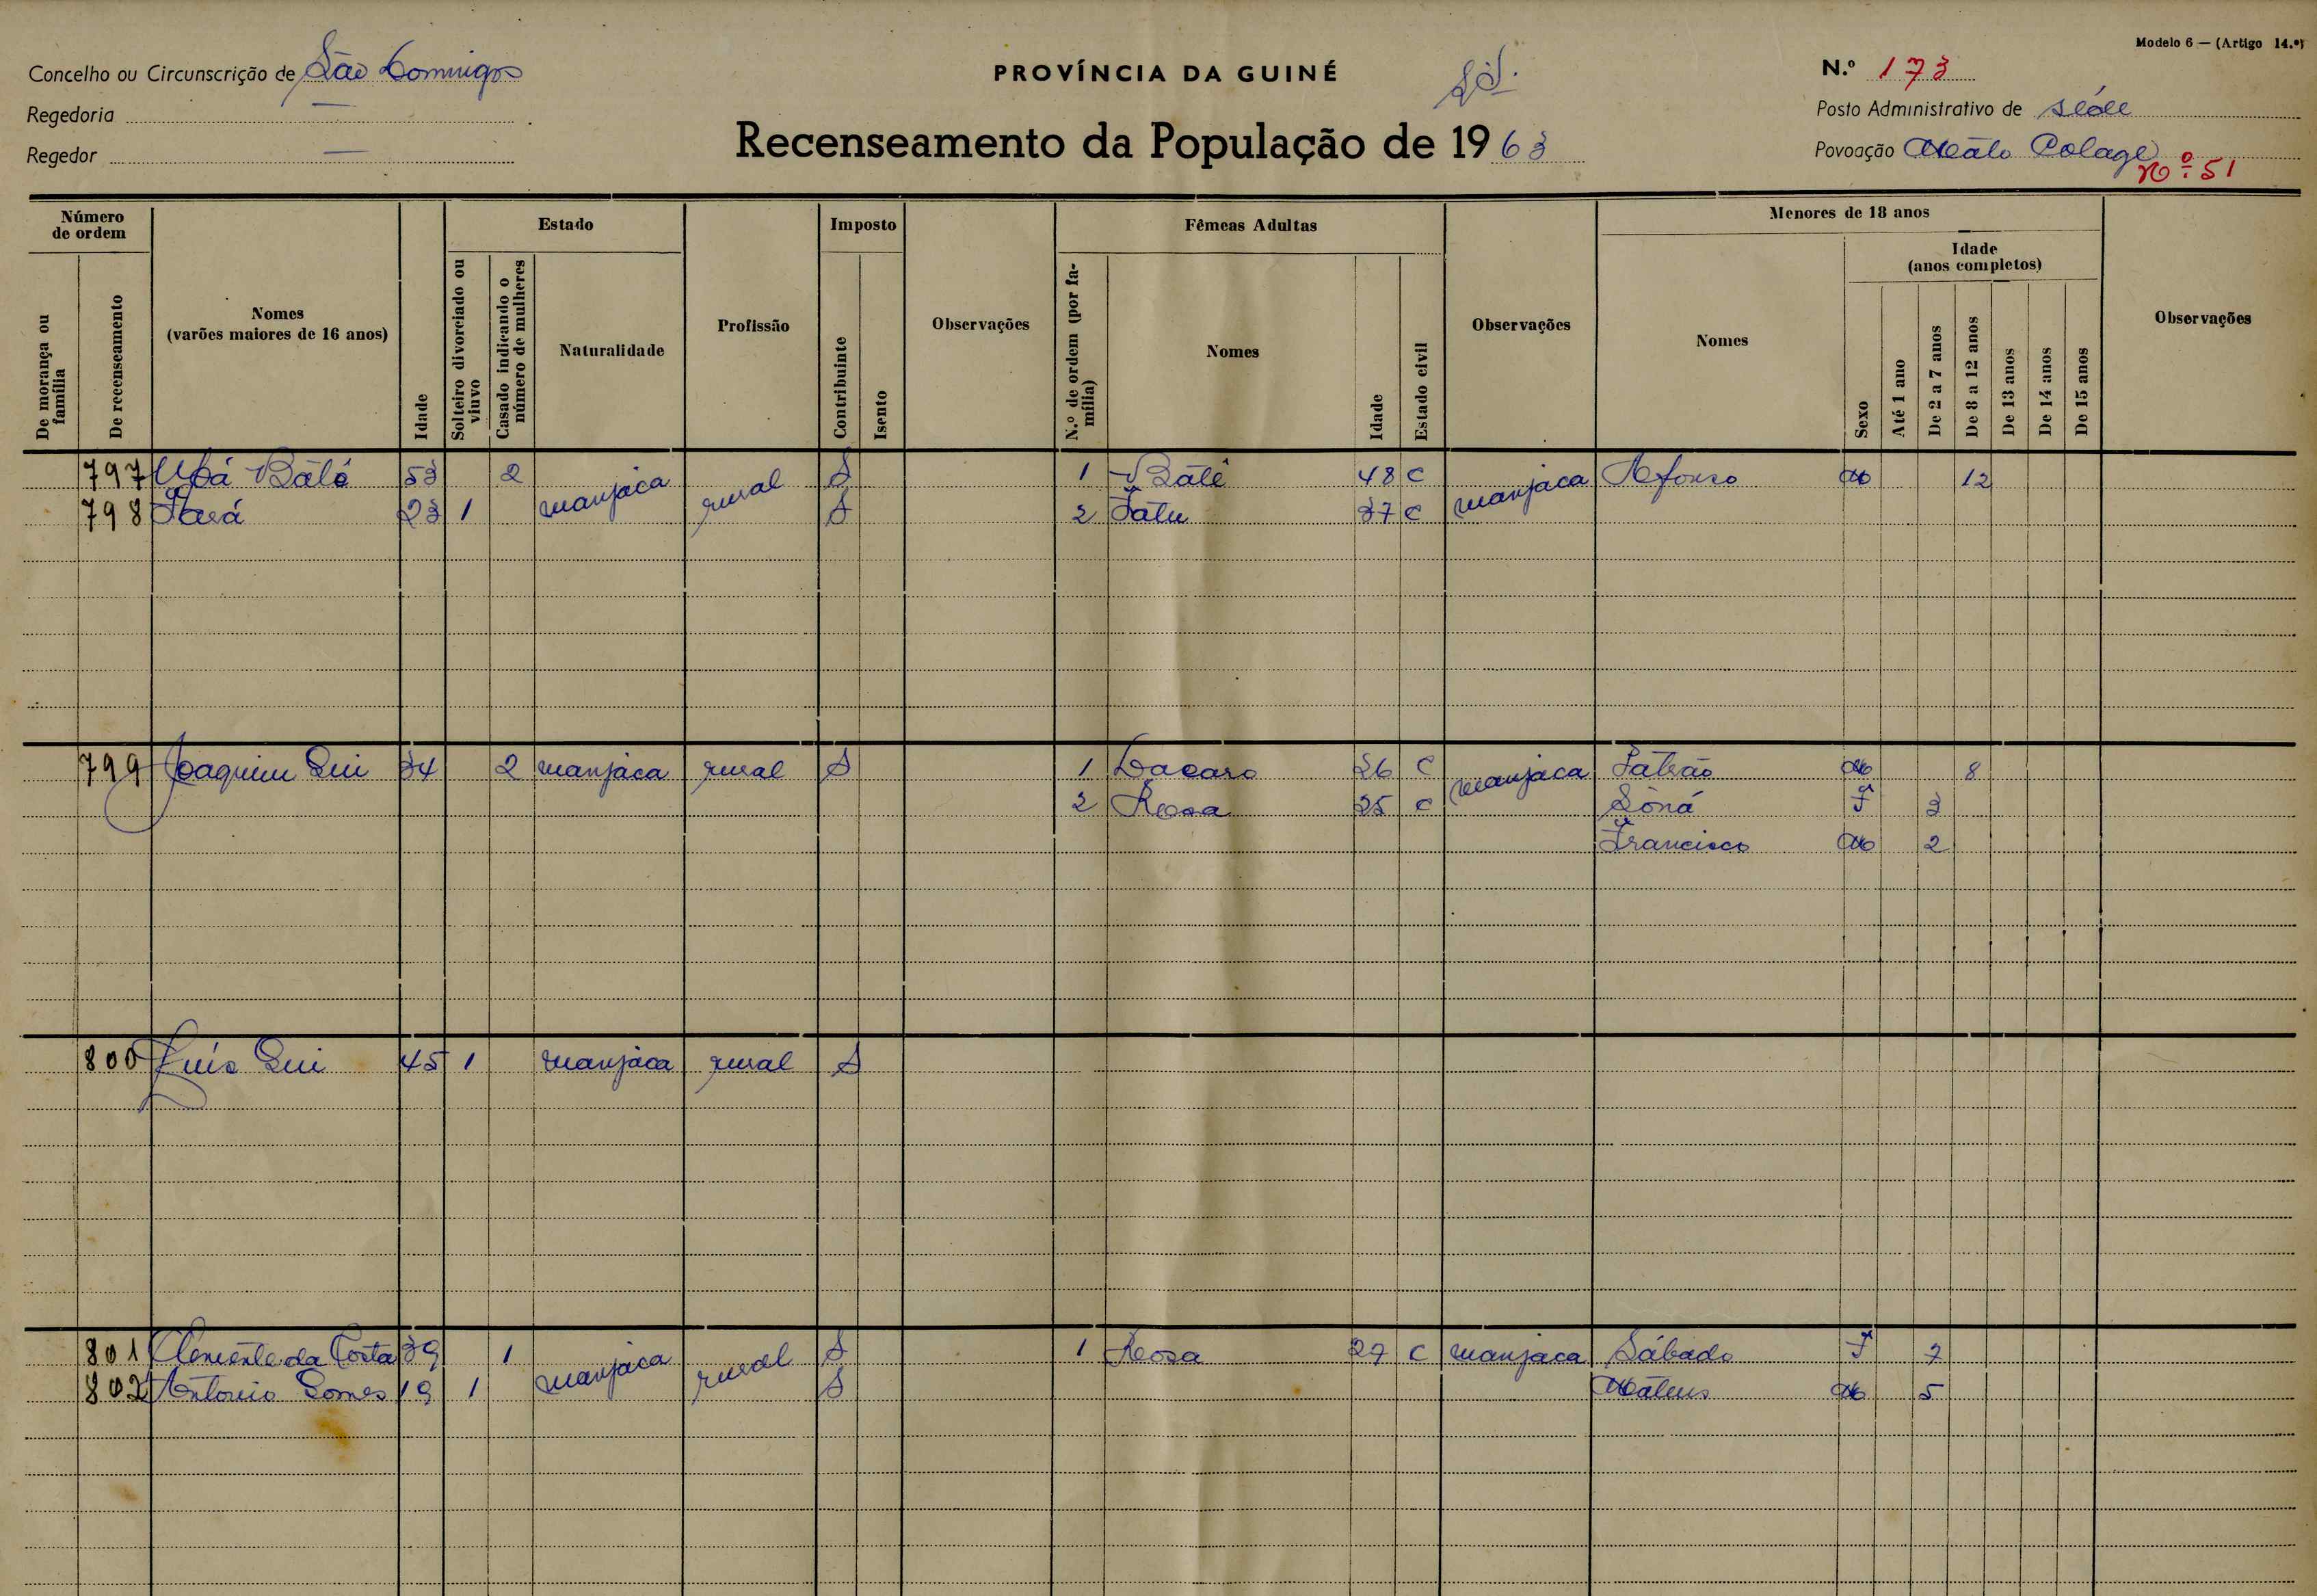 Modelo 6 — (Artigo 14.º)
Concelho ou Circunscrição de São Domingos
PROVÍNCIA DA GUINÉ
N.º 173
Regedoria —
Posto Administrativo de Séde
Regedor —
Recenseamento da População de 1963
Povoação
Nº 51
Número de ordem
De morança ou família
De recenseamento
Nomes (varões maiores de 16 anos)
Idade
Estado
Solteiro divorciado ou viuvo
Casado indicando o número de mulheres
Naturalidade
Profissão
Imposto
Contribuinte
Isento
Observações
Fêmeas Adultas
N.º de ordem (por família)
Nomes
Idade
Estado civil
Observações
Menores de 18 anos
Nomes
Sexo
Idade (anos completos)
Até 1 ano
De 2 a 7 anos
De 8 a 12 anos
De 13 anos
De 14 anos
De 15 anos
Observações
797 53 2 manjaca rural S 1 Batê 48 C manjaca Afonso M 12
798 23 1 S 2 Fatu 37 C
799 Joaquim Sui 34 2 manjaca rural S 1 Dacaro 26 C manjaca Patrão M 8
2 Rosa 25 C Soná F 3
Francisco M 2
800 Luís Sui 45 1 manjaca rural S
801 Clemente da Costa 39 1 manjaca rural S 1 Rosa 27 C manjaca Sábado F 7
802 Antonio Gomes 19 1 S Mateus M 5